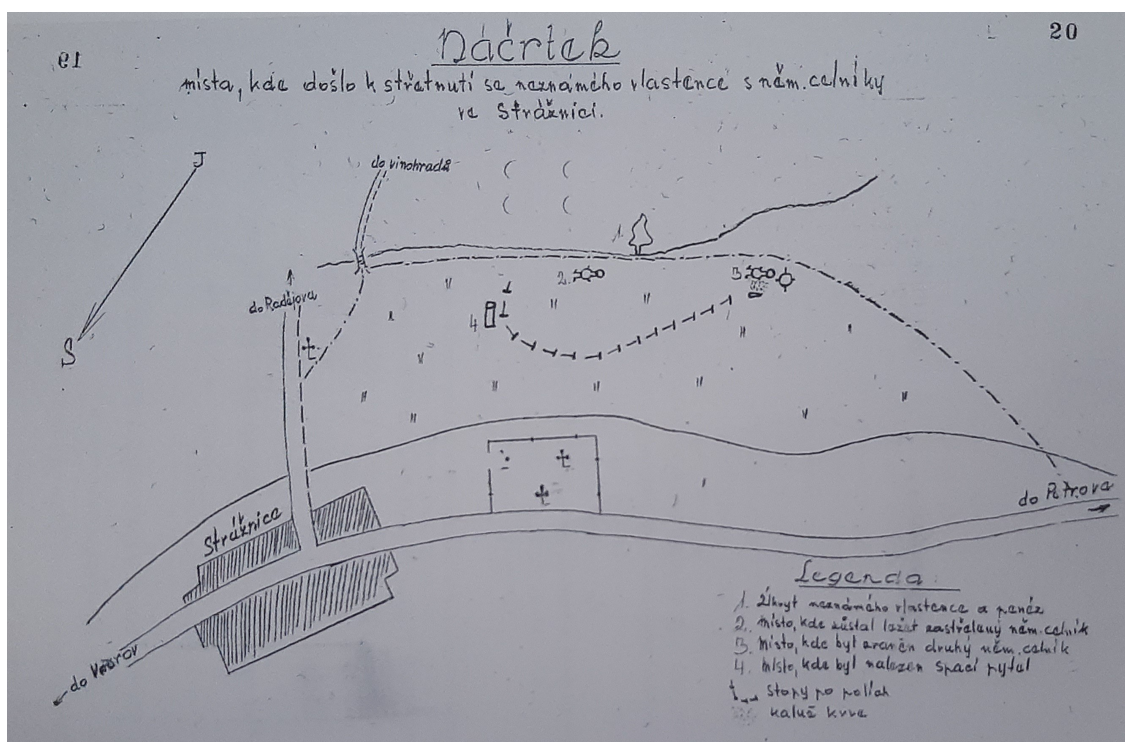 19
20
Náčrtek
místa, kde došlo k střetnutí se neznámého vlastence s něm. celníky
ve Strážnici.
J
do vinohradů
S
do Radějova
1.
2.
3
4
Strážnice
do Petrova
do
Legenda
1. Úkryt neznámého vlastence a peněz
2. místo, kde zůstal ležet zastřelený něm. celník
3. Místo, kde byl zraněn druhý něm. celník
4. místo, kde byl nalezen spací pytel
stopy po polích
kaluž krve